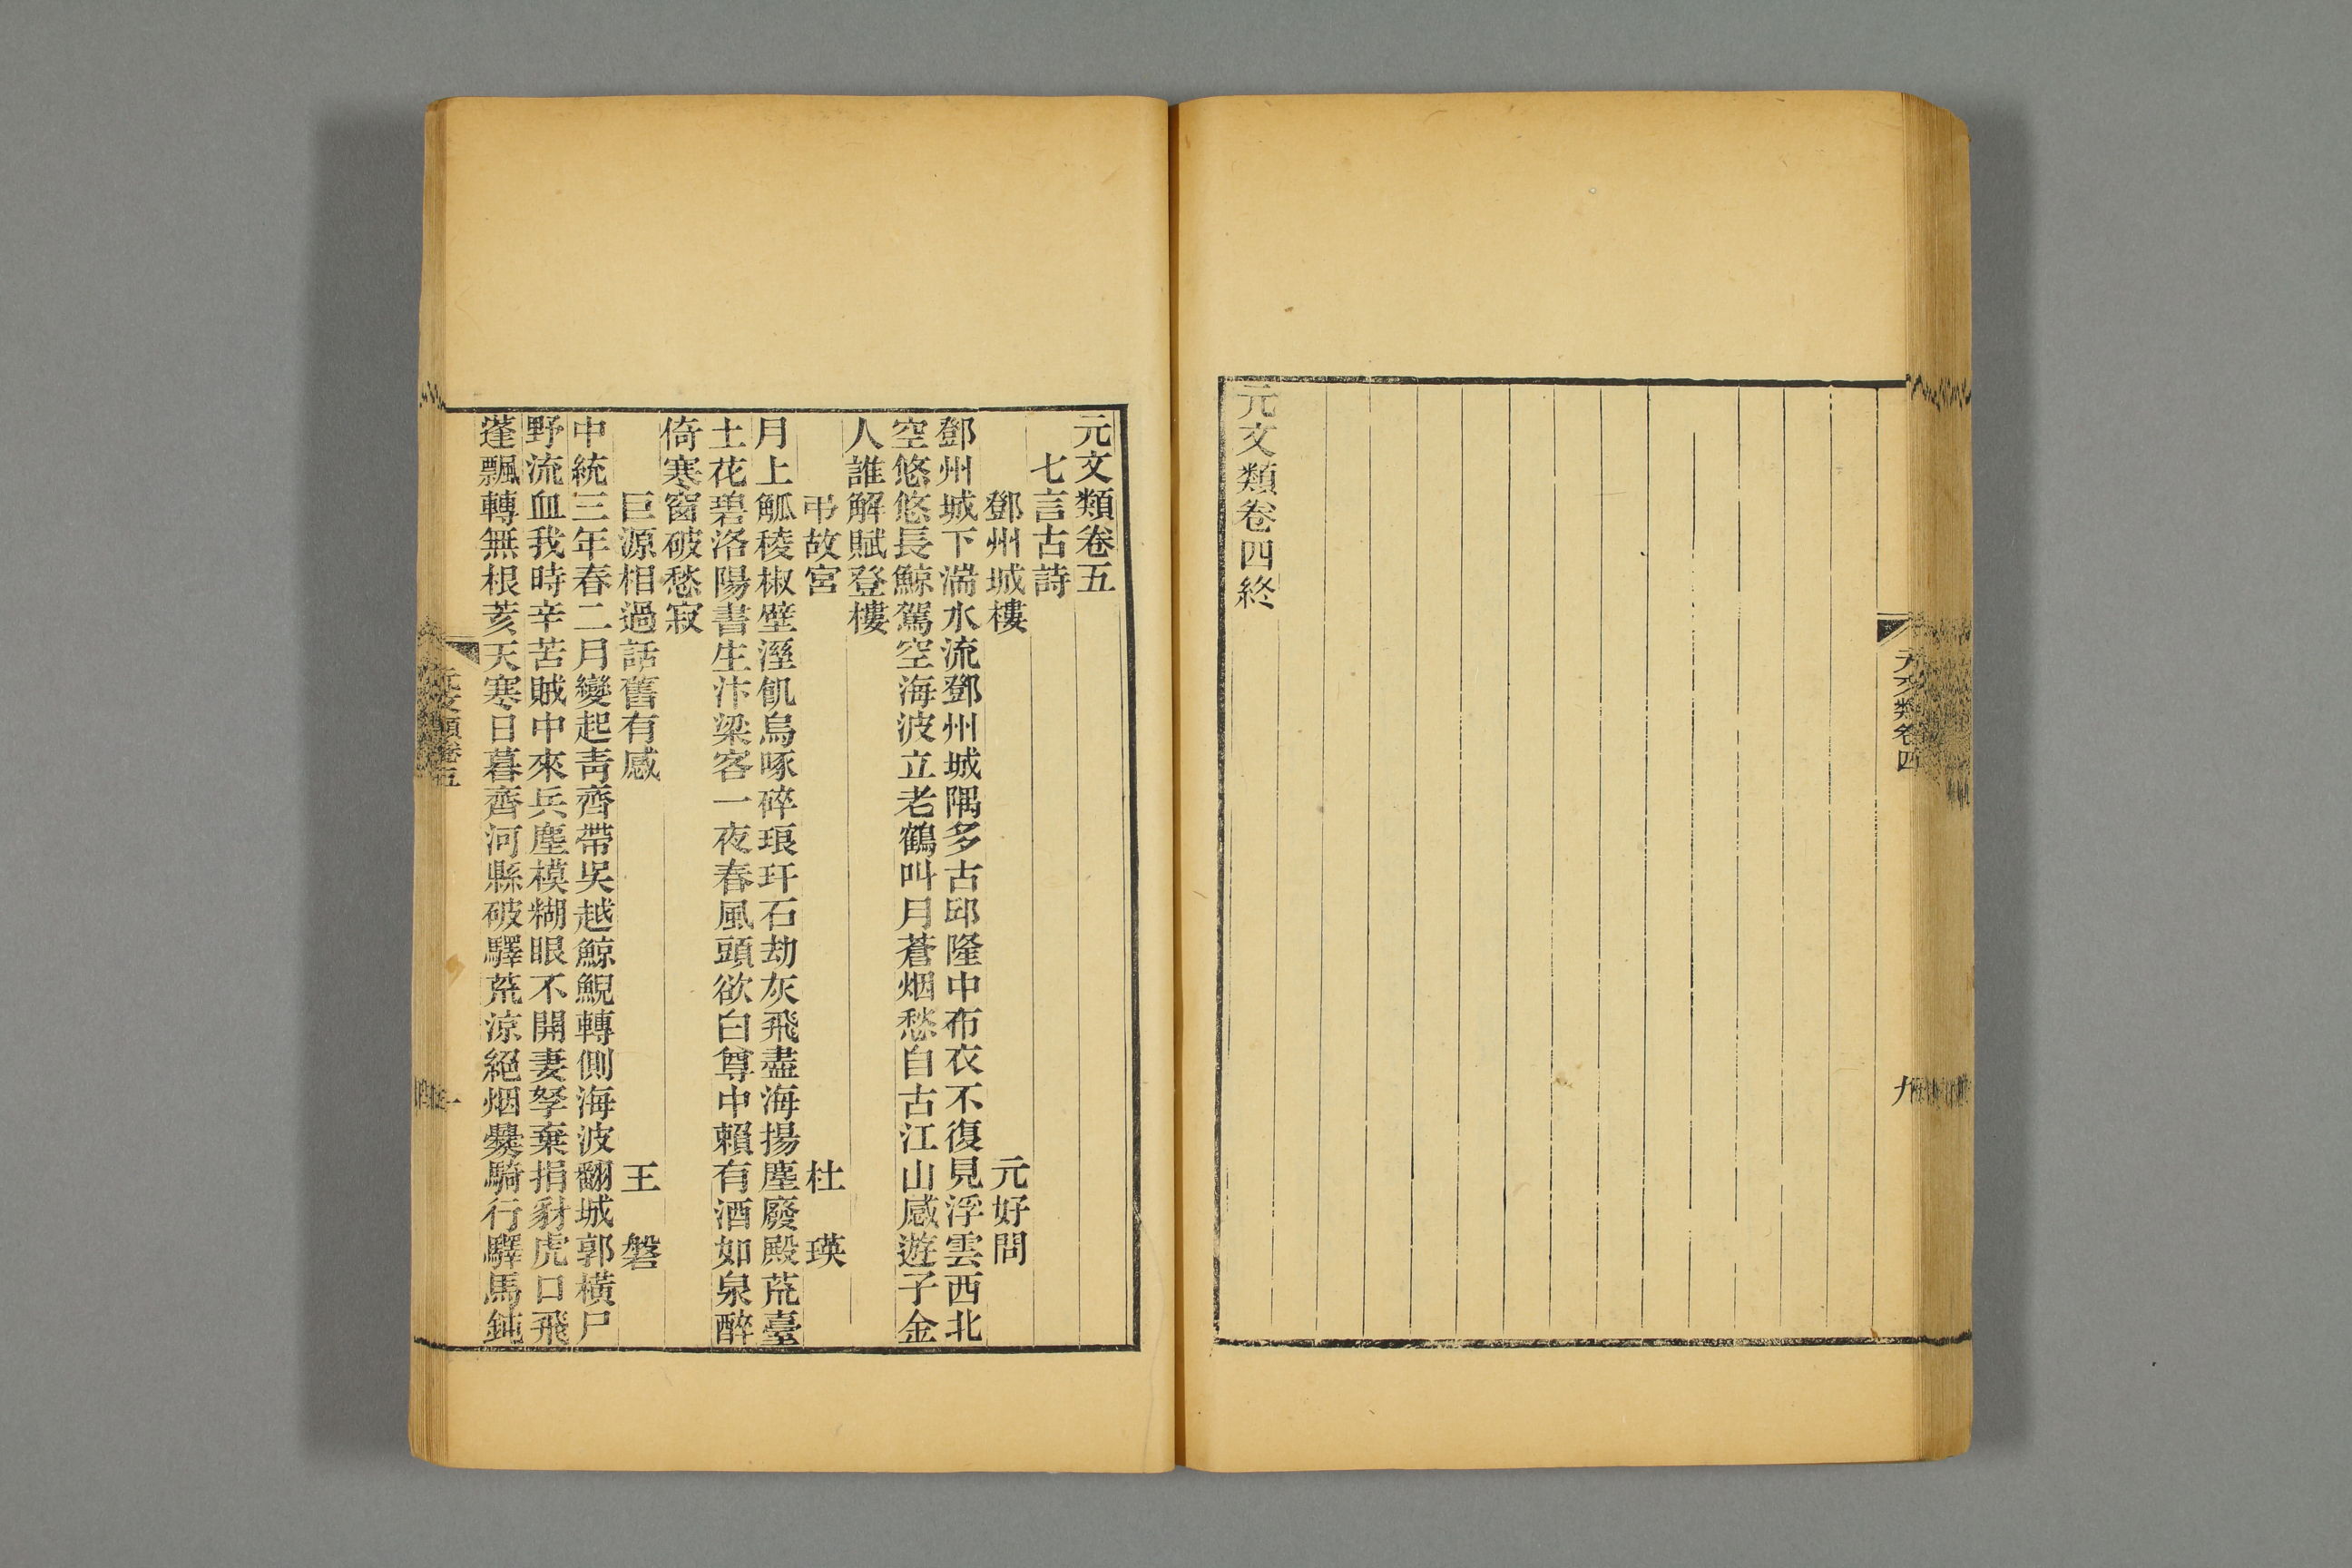 元文類卷四
九
元文類卷四終
元文類卷五
七言古詩
鄧州城樓　元好問
鄧州城下湍水流鄧州城隅多古邱隆中布衣不復見浮雲西北
空悠悠長鯨駕空海波立老鶴叫月蒼烟愁自古江山感遊子金
人誰解賦登樓
弔故宮　杜瑛
月上觚稜椒壁溼飢烏啄碎琅玕石劫灰飛盡海揚塵廢殿荒臺
土花碧洛陽書生汴梁客一夜春風頭欲白尊中賴有酒如泉醉
倚寒窗破愁寂
巨源相過話舊有感　王磐
中統三年春二月變起青齊帶吳越鯨鯢轉側海波翻城郭橫尸
野流血我時辛苦賊中來兵塵模糊眼不開妻孥棄捐豺虎口飛
蓬飄轉無根荄天寒日暮齊河縣破驛荒涼絕烟爨騎行驛馬鈍
元文類卷五
一